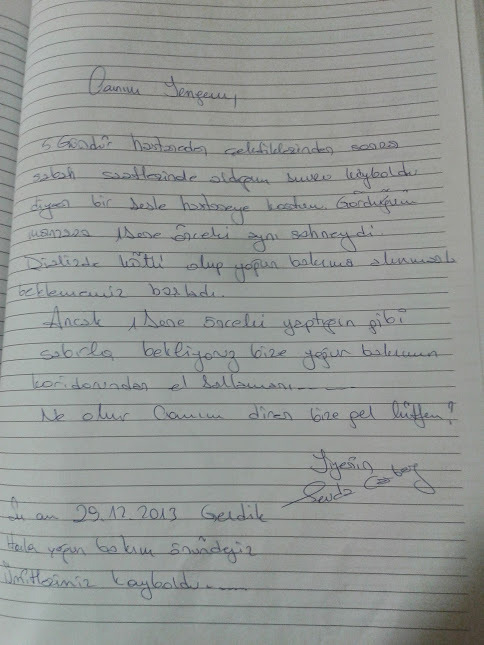 Canım Yengem,
5 Gündür hastaneden geldiklerinden sonra
sabah saatlerinde aldığım şuuru kayboldu
diyen bir sesle hastaneye koştum. Gördüğüm
manzara 1 sene önceki aynı sahneydi.
Dializde kötü olup yoğun bakıma alınmasıyla
beklememiz başladı.
Ancak 1 sene önceki yaptığın gibi
sabırla bekliyoruz bize yoğun bakımın
koridorundan el sallamanı......
Ne olur Canım diren bize gel lütfen!
Yeğenin
Sevda
Şu an 29.12.2013 Geldik
Hala yoğun bakım önündeyiz
Ümitlerimiz kayboldu.....